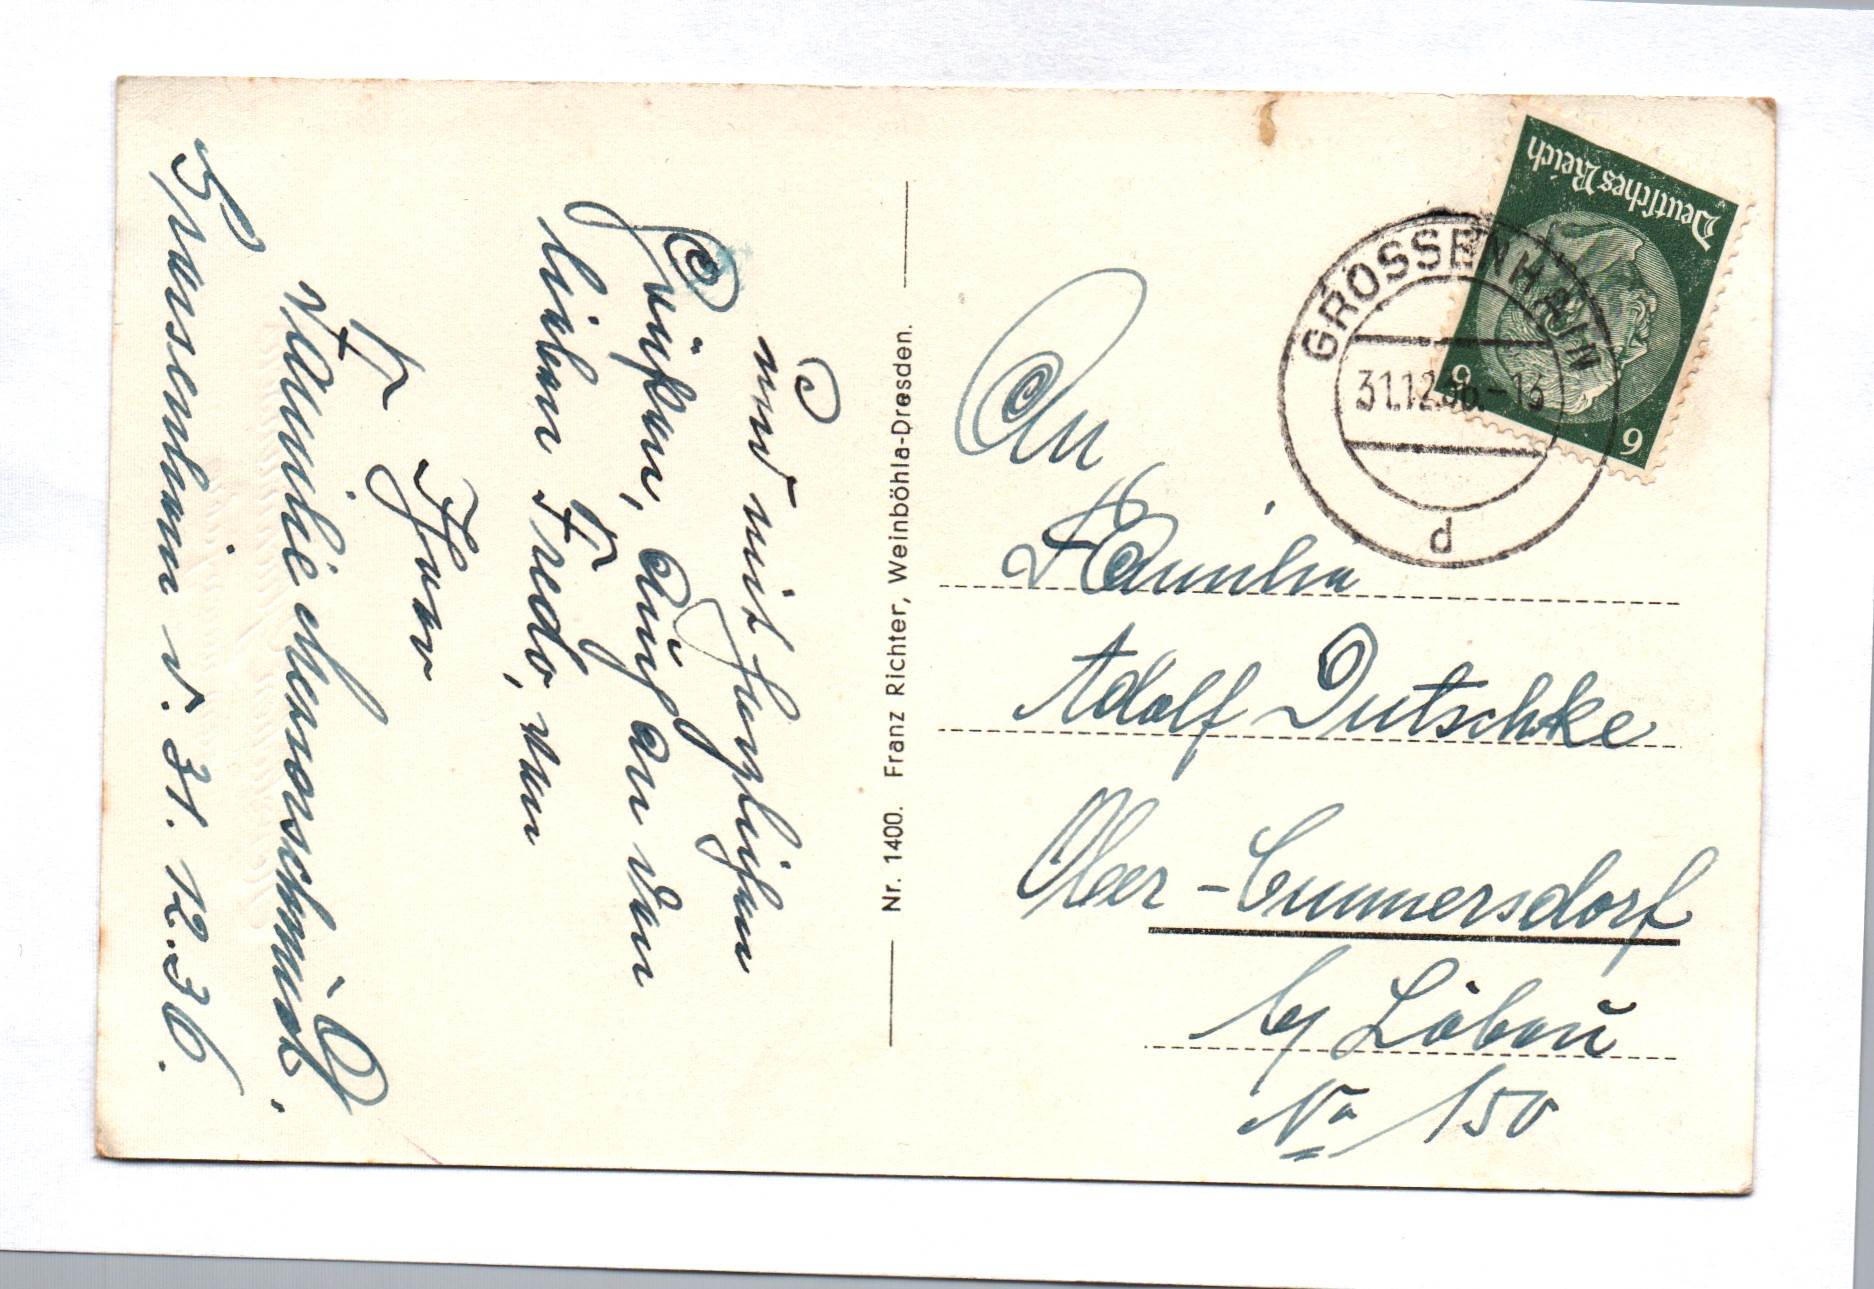 und mit herzlichen
Grüßen, auch an den
lieben Fredo, von
Ihrer
Familie
Grossenhain d. 31.12.36.
Nr. 1400. Franz Richter, Weinböhla-Dresden.
Deutsches Reich
6 6
GROSSENHAIN
31.12.36.-16
d
An
Familie
Adolf Dutschke
Ober-Cunnersdorf
b/ Löbau
No 150